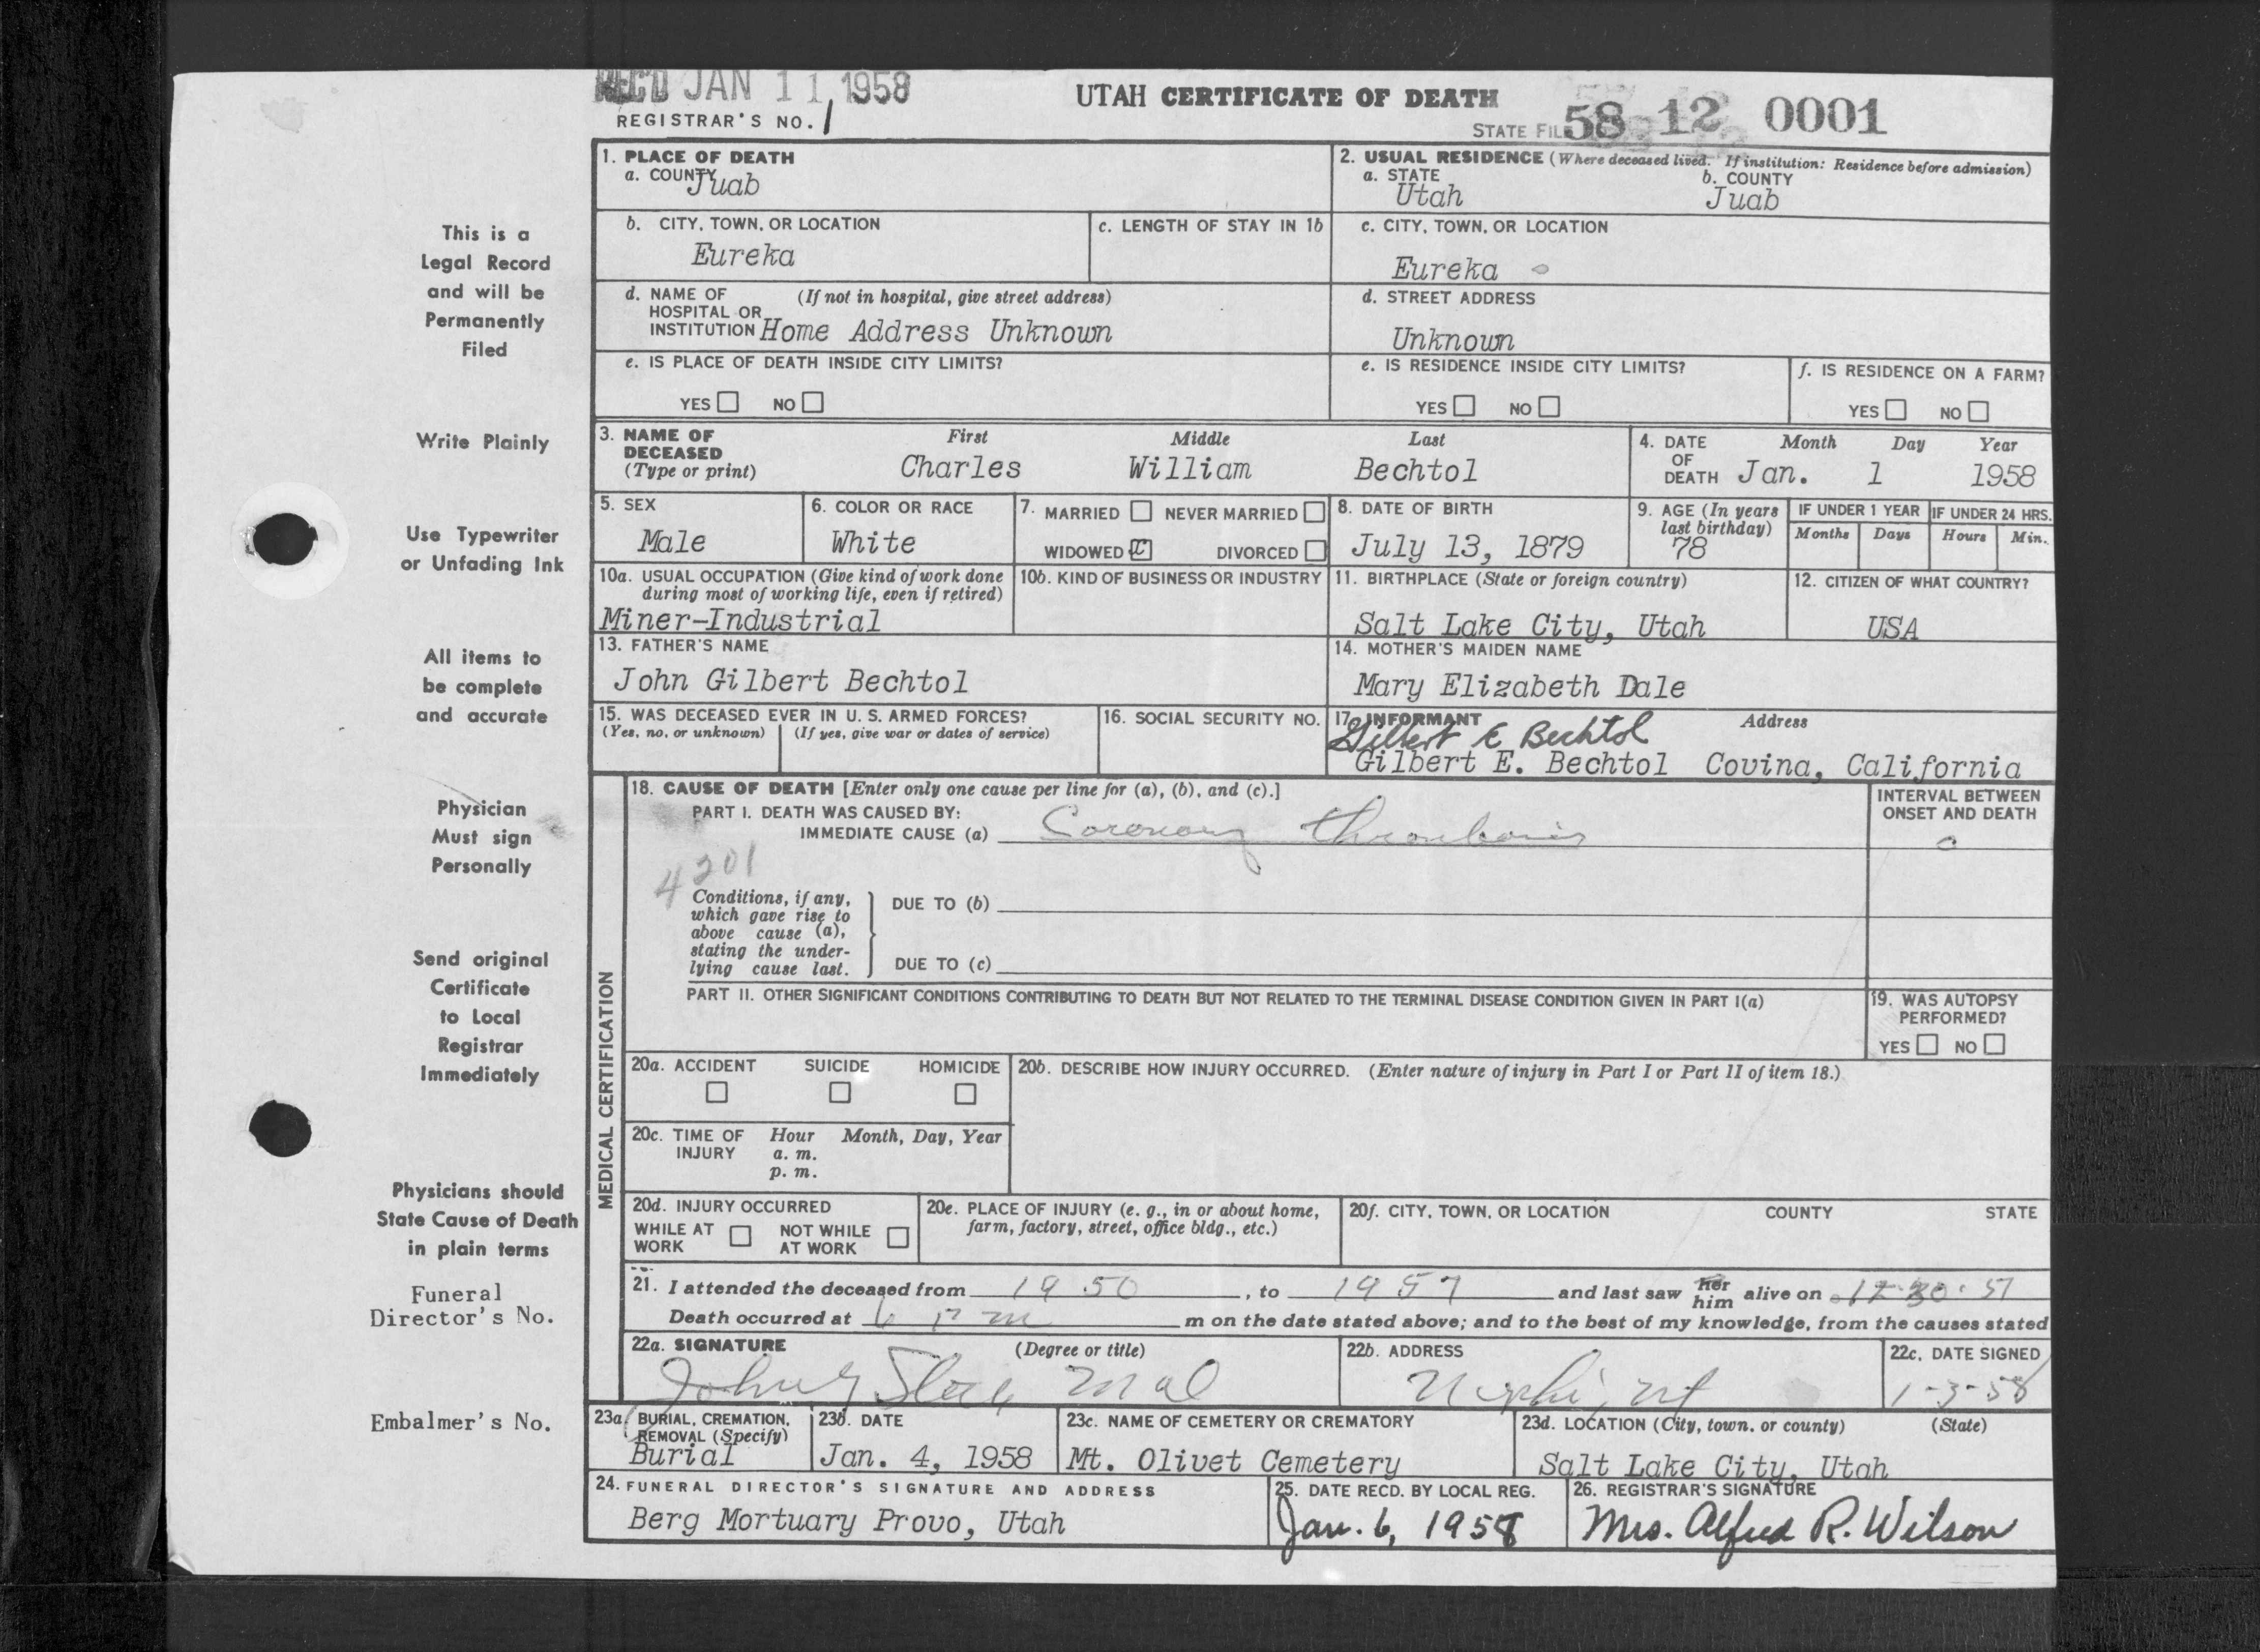 REC'D JAN 11 1958
UTAH CERTIFICATE OF DEATH
REGISTRAR'S NO. 1
STATE FIL 58 12 0001
This is a
Legal Record
and will be
Permanently
Filed
Write Plainly
Use Typewriter
or Unfading Ink
All items to
be complete
and accurate
Physician
Must sign
Personally
Send original
Certificate
to Local
Registrar
Immediately
Physicians should
State Cause of Death
in plain terms
Funeral
Director's No.
Embalmer's No.
1. PLACE OF DEATH
a. COUNTY
Juab
2. USUAL RESIDENCE (Where deceased lived. If institution: Residence before admission)
a. STATE b. COUNTY
Utah Juab
b. CITY, TOWN, OR LOCATION
Eureka
c. LENGTH OF STAY IN 1b
c. CITY, TOWN, OR LOCATION
Eureka
d. NAME OF (If not in hospital, give street address)
HOSPITAL OR
INSTITUTION Home Address Unknown
d. STREET ADDRESS
Unknown
e. IS PLACE OF DEATH INSIDE CITY LIMITS?
YES NO
e. IS RESIDENCE INSIDE CITY LIMITS?
YES NO
f. IS RESIDENCE ON A FARM?
YES NO
3. NAME OF First Middle Last
DECEASED
(Type or print) Charles William Bechtol
4. DATE Month Day Year
OF
DEATH Jan. 1 1958
5. SEX
Male
6. COLOR OR RACE
White
7. MARRIED NEVER MARRIED
WIDOWED DIVORCED
8. DATE OF BIRTH
July 13, 1879
9. AGE (In years
last birthday)
78
IF UNDER 1 YEAR IF UNDER 24 HRS.
Months Days Hours Min.
10a. USUAL OCCUPATION (Give kind of work done
during most of working life, even if retired)
Miner-Industrial
10b. KIND OF BUSINESS OR INDUSTRY
11. BIRTHPLACE (State or foreign country)
Salt Lake City, Utah
12. CITIZEN OF WHAT COUNTRY?
USA
13. FATHER'S NAME
John Gilbert Bechtol
14. MOTHER'S MAIDEN NAME
Mary Elizabeth Dale
15. WAS DECEASED EVER IN U. S. ARMED FORCES?
(Yes, no, or unknown) (If yes, give war or dates of service)
16. SOCIAL SECURITY NO.
17. INFORMANT Address
Gilbert E Bechtol
Gilbert E. Bechtol Covina, California
MEDICAL CERTIFICATION
18. CAUSE OF DEATH [Enter only one cause per line for (a), (b), and (c).]
PART I. DEATH WAS CAUSED BY:
IMMEDIATE CAUSE (a) Coronary thrombosis
INTERVAL BETWEEN
ONSET AND DEATH
0
4201
Conditions, if any,
which gave rise to
above cause (a),
stating the under-
lying cause last.
DUE TO (b)
DUE TO (c)
PART II. OTHER SIGNIFICANT CONDITIONS CONTRIBUTING TO DEATH BUT NOT RELATED TO THE TERMINAL DISEASE CONDITION GIVEN IN PART I(a)
19. WAS AUTOPSY
PERFORMED?
YES NO
20a. ACCIDENT SUICIDE HOMICIDE
20b. DESCRIBE HOW INJURY OCCURRED. (Enter nature of injury in Part I or Part II of item 18.)
20c. TIME OF Hour Month, Day, Year
INJURY a. m.
p. m.
20d. INJURY OCCURRED
WHILE AT NOT WHILE
WORK AT WORK
20e. PLACE OF INJURY (e. g., in or about home,
farm, factory, street, office bldg., etc.)
20f. CITY, TOWN, OR LOCATION COUNTY STATE
21. I attended the deceased from 1950, to 1957 and last saw her him alive on 12-30-57
Death occurred at 6 Pm m on the date stated above; and to the best of my knowledge, from the causes stated
22a. SIGNATURE (Degree or title)
John
22b. ADDRESS
Nephi, Ut
22c. DATE SIGNED
1-3-58
23a. BURIAL, CREMATION,
REMOVAL (Specify)
Burial
23b. DATE
Jan. 4, 1958
23c. NAME OF CEMETERY OR CREMATORY
Mt. Olivet Cemetery
23d. LOCATION (City, town, or county) (State)
Salt Lake City, Utah
24. FUNERAL DIRECTOR'S SIGNATURE AND ADDRESS
Berg Mortuary Provo, Utah
25. DATE RECD. BY LOCAL REG.
Jan. 6, 1958
26. REGISTRAR'S SIGNATURE
Mrs. Alfred R. Wilson